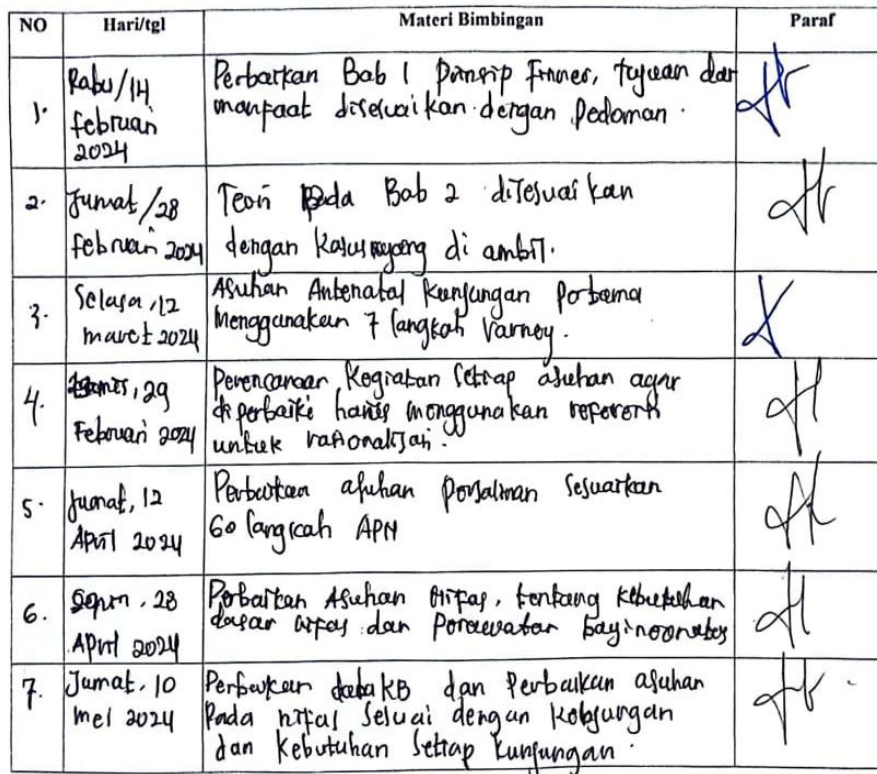 NO Hari/tgl Materi Bimbingan Paraf
1. Rabu/14 februari 2024
Perbaikan Bab 1 Prinsip Finner, tujuan dan
manfaat disesuaikan dengan Pedoman.
2. Jumat/28 februari 2024
Teori Pada Bab 2 disesuaikan
dengan Kasus yang di ambil.
3. Selasa, 12 maret 2024
Asuhan Antenatal kunjungan pertama
menggunakan 7 langkah Varney.
4. Kamis, 29 Februari 2024
Perencanaan Kegiatan Setiap asuhan agar
diperbaiki harus menggunakan referensi
untuk rasionalisasi.
5. Jumat, 12 April 2024
Perbaikan asuhan persalinan Sesuaikan
60 langkah APN
6. Senin, 28 April 2024
Perbaikan Asuhan nifas, tentang kebutuhan
dasar nifas dan Perawatan bayi
7. Jumat, 10 mei 2024
Perbaikan data KB dan Perbaikan asuhan
Pada nifas Sesuai dengan
dan Kebutuhan Setiap kunjungan.